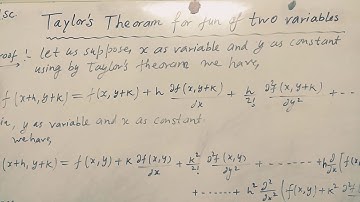 Sc.
Taylor's Theoram for fun of two variables
Proof :- Let us suppose, x as variable and y as constant
using by Taylor's theoram we have,
f(x+h, y+k) = f(x, y+k) + h ∂f(x, y+k)/∂x + h/2! ∂²f(x, y+k)/∂y² + - - -
y as variable and x as constant.
we have,
(x+h, y+k) = f(x,y) + k ∂f(x,y)/∂x + k²/2! ∂²f(x,y)/∂y² + - - - - - - - + h ∂/∂x [f(x,
+ - - - - - + h² ∂²/∂x² (f(x,y) + k² ∂²f